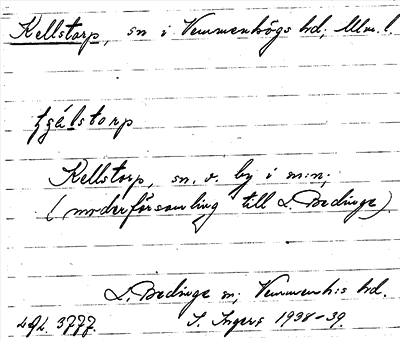 Kellstorp, sn i Vemmenhögs hd, Mlm. l.
Kellstorp, sn. o. by i m:n;
(moderförsamling till L. Bedinge).
L. Bedinge sn, Vemmenh:s hd.
3777. S. Ingers 1938-39.